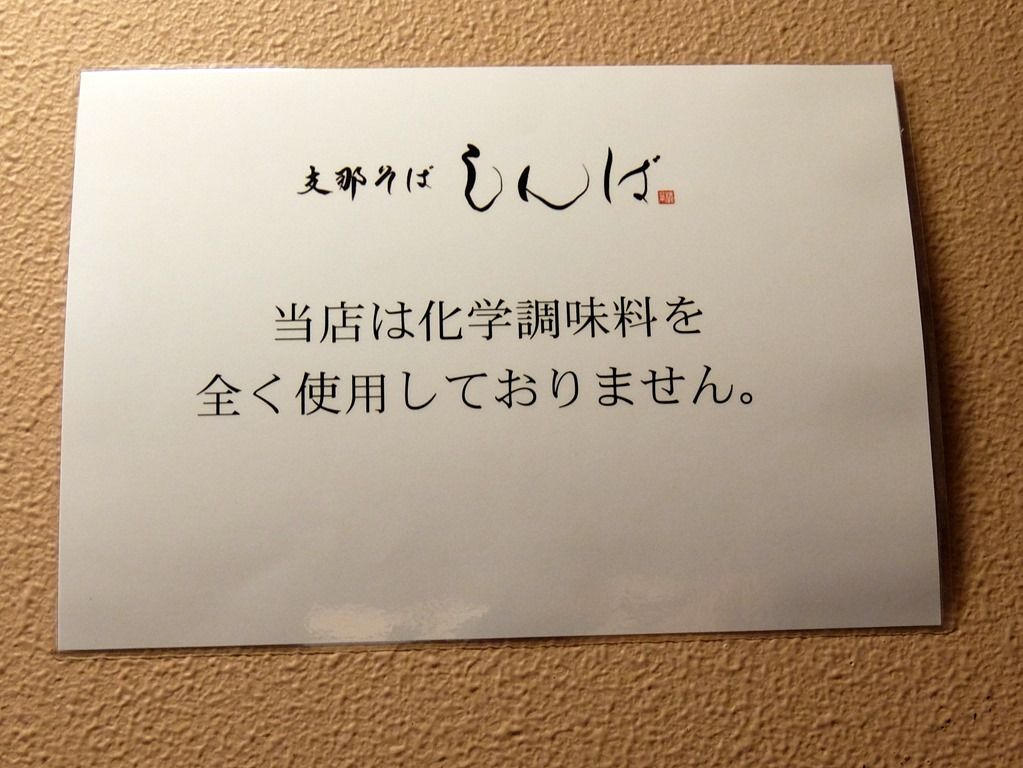 支那そば しんば
当店は化学調味料を
全く使用しておりません。